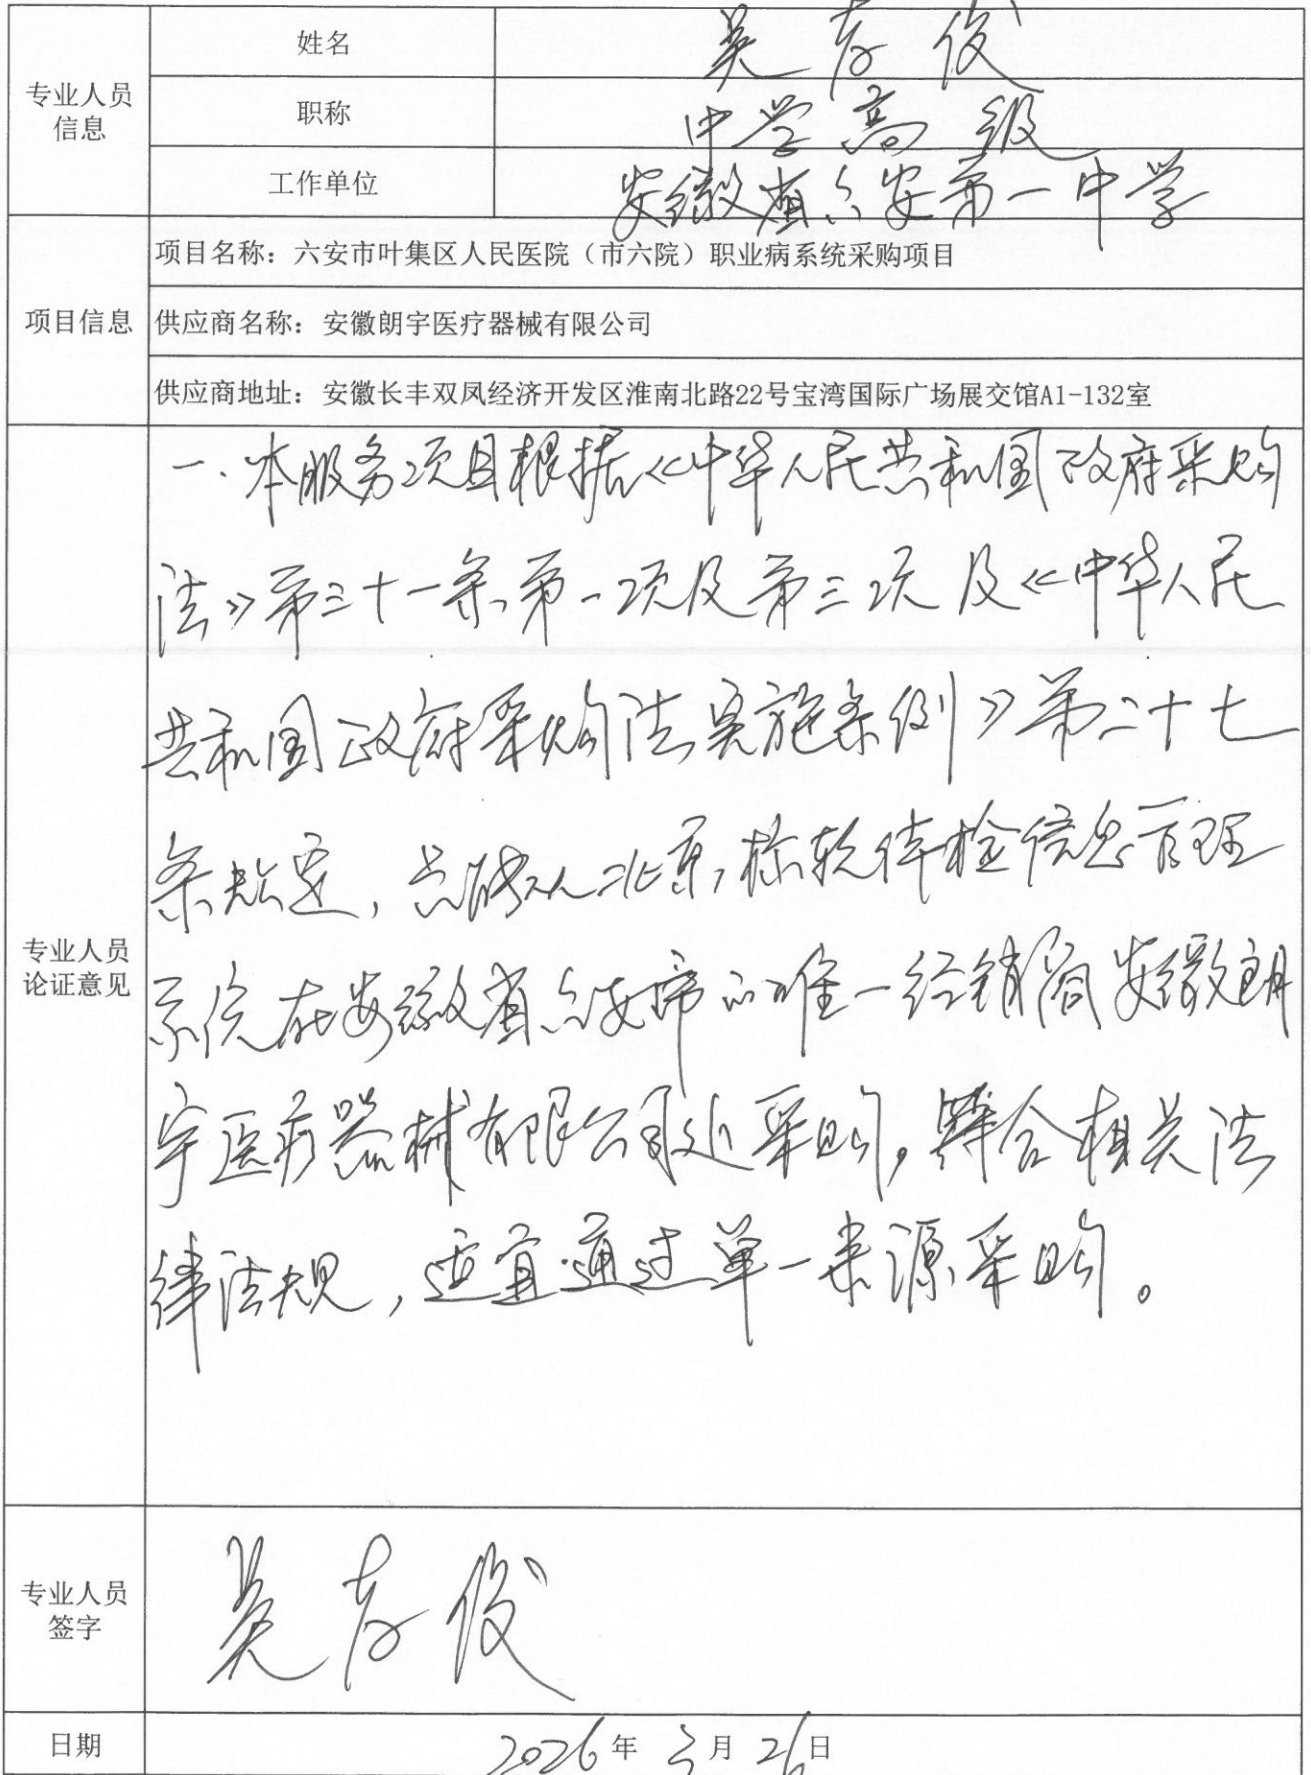 专业人员
信息
姓名
吴存俊
职称
中学高级
工作单位
安徽省六安第一中学
项目信息
项目名称：六安市叶集区人民医院（市六院）职业病系统采购项目
供应商名称：安徽朗宇医疗器械有限公司
供应商地址：安徽长丰双凤经济开发区淮南北路22号宝湾国际广场展交馆A1-132室
专业人员
论证意见
一、本服务项目根据《中华人民共和国政府采购
法》第三十一条第一项及第三项及《中华人民
共和国政府采购法实施条例》第二十七
条规定，只能从北京 软体检信息管理
系统在安徽省六安市的唯一经销商安徽朗
宇医疗器械有限公司处采购，符合相关法
律法规，适宜通过单一来源采购。
专业人员
签字
吴存俊
日期
2026年3月26日